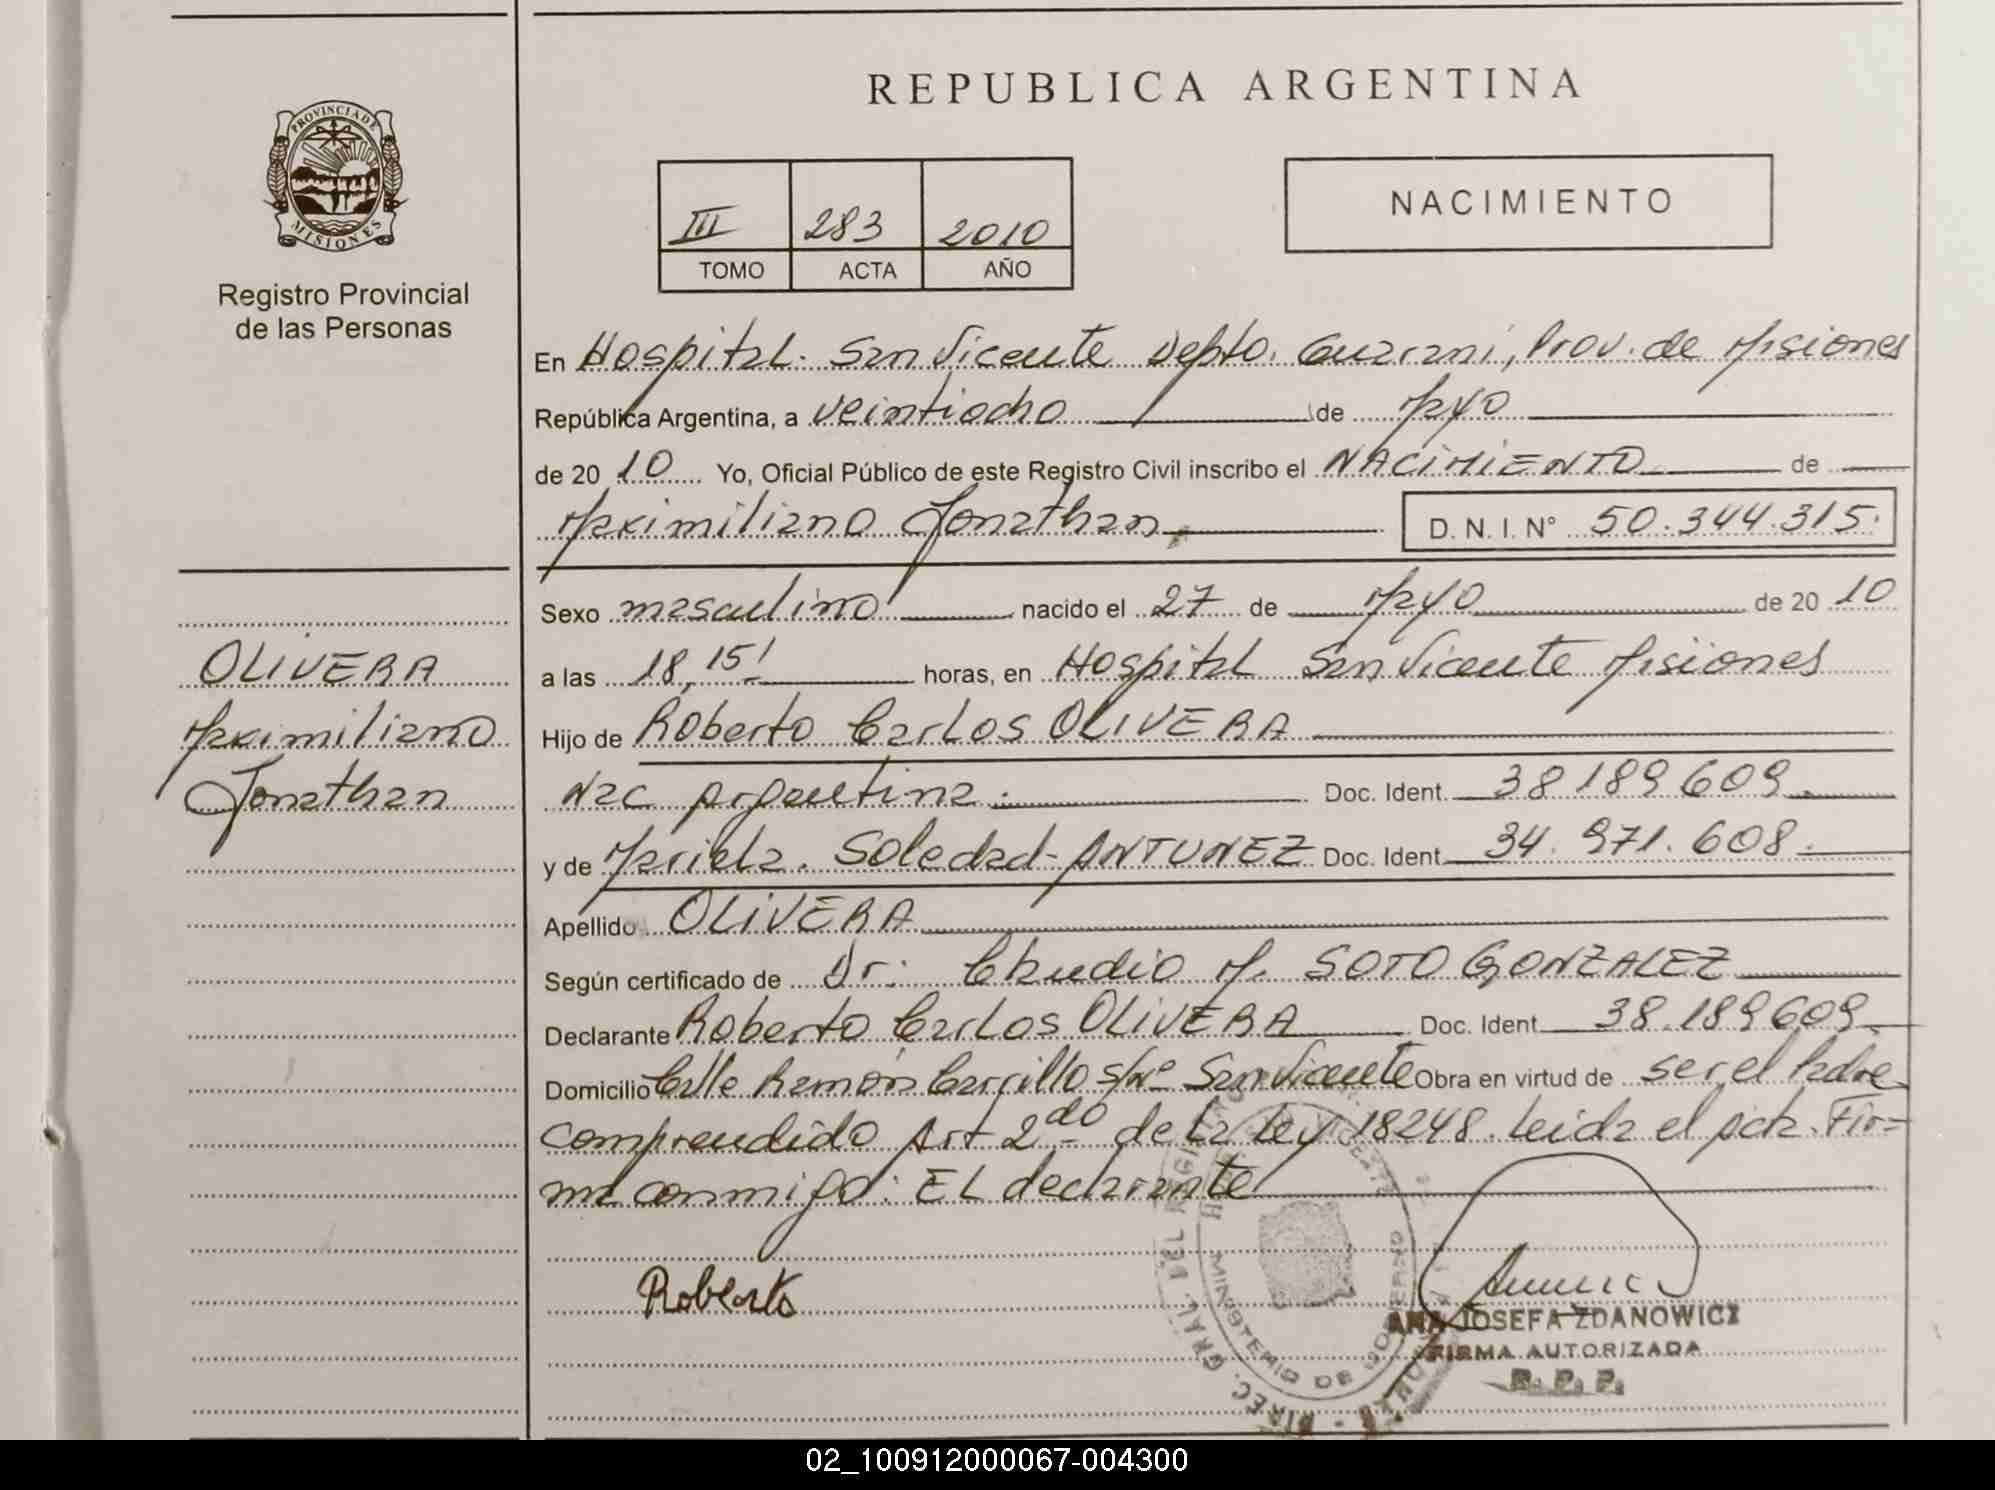 REPUBLICA ARGENTINA
PROVINCIA DE
MISIONES
Registro Provincial
de las Personas
III 283 2010
TOMO ACTA AÑO
NACIMIENTO
En Hospital. San Vicente Depto. Guarani, Prov. de Misiones
República Argentina, a veintiocho de Mayo
de 2010 Yo, Oficial Público de este Registro Civil inscribo el NACIMIENTO de
Maximiliano Jonathan
D. N. I. N° 50.344.315.
Sexo masculino nacido el 27 de Mayo de 2010
a las 18,15' horas, en Hospital San Vicente Misiones
Hijo de Roberto Carlos OLIVERA
Nac Argentina. Doc. Ident. 38 189 609
y de Mariela. Soledad - ANTUNEZ Doc. Ident. 34. 971. 608.
Apellido OLIVERA
Según certificado de Dr: Claudio M. SOTO GONZALEZ
Declarante Roberto Carlos OLIVERA Doc. Ident. 38.189 609.
Domicilio Calle Ramón Carrillo s/Nº San Vicente Obra en virtud de ser el Padre
comprendido Art 2do de la Ley 18248. Leida el Acta. Fir=
ma conmigo: EL declarante
OLIVERA
Maximiliano
Jonathan
Roberto
ANA JOSEFA ZDANOWICZ
FIRMA AUTORIZADA
R. P. P.
DIREC. GRAL. DEL REGISTRO
MINISTERIO DE GOBIERNO
02_100912000067-004300